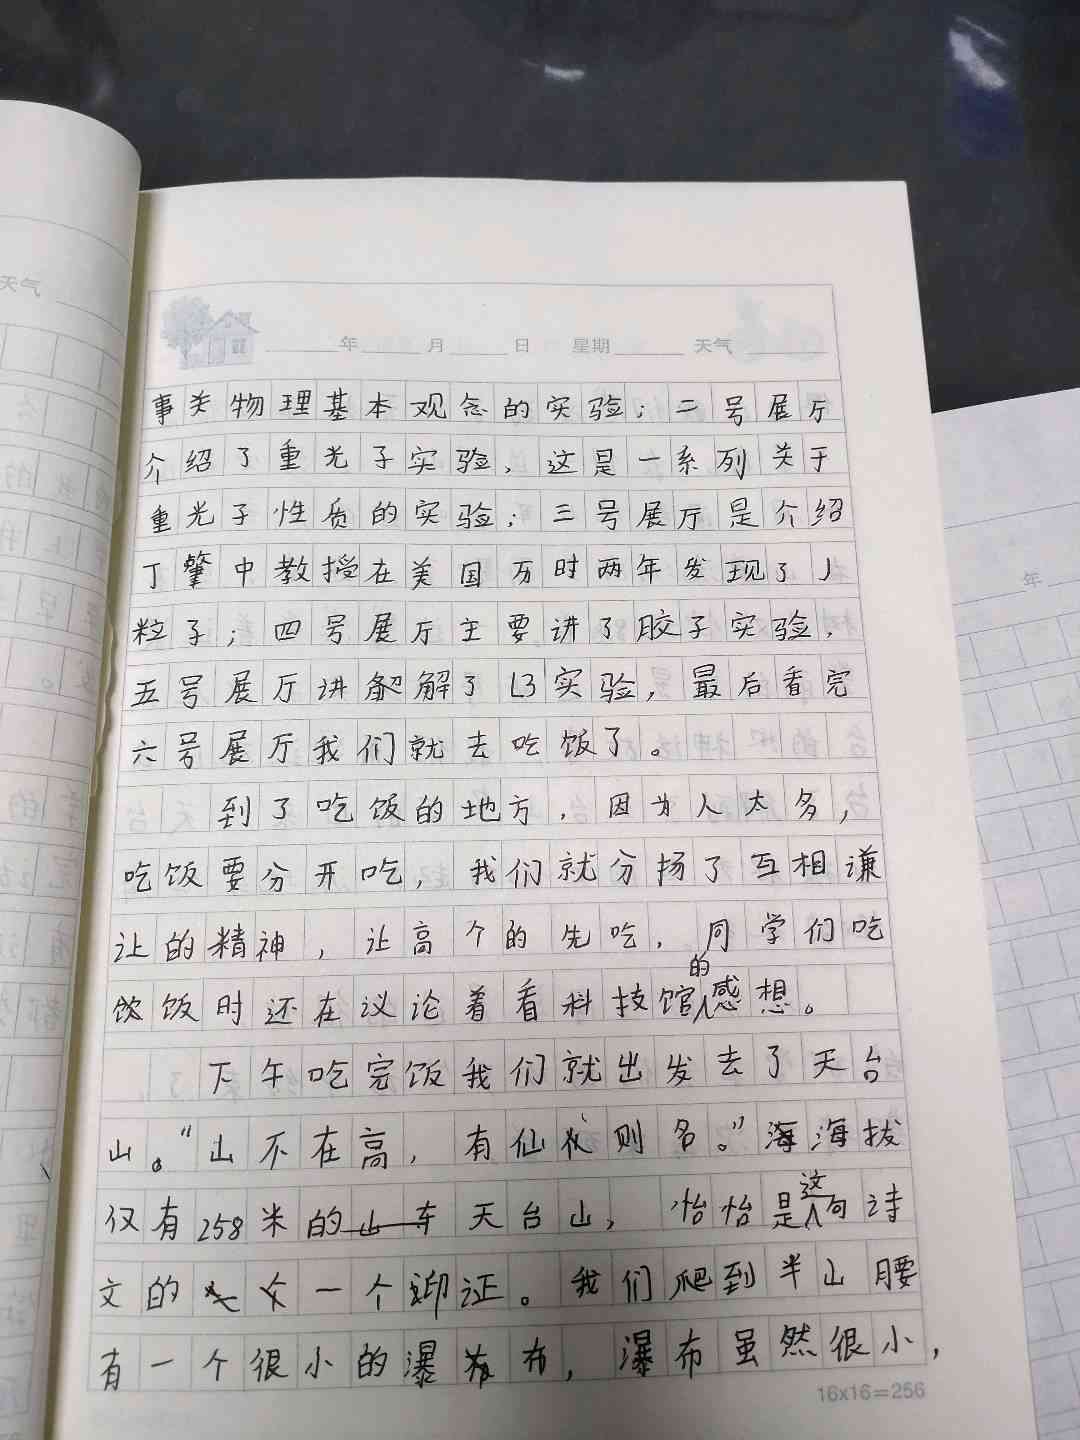 天气
年 月 日 星期 天气
事关物理基本观念的实验；二号展厅
介绍了重光子实验，这是一系列关于
重光子性质的实验；三号展厅是介绍
丁肇中教授在美国万时两年发现了J
粒子；四号展厅主要讲了胶子实验，
五号展厅讲解了L3实验，最后看完
六号展厅我们就去吃饭了。
到了吃饭的地方，因为人太多，
吃饭要分开吃，我们就分扬了互相谦
让的精神，让高个的先吃，同学们吃
饮饭时还在议论着看科技馆的感想。
下午吃完饭我们就出发去了天台
山。“山不在高，有仙则名。”海拔
仅有258米的天台山，怡怡是这句诗
文的一个印证。我们爬到半山腰
有一个很小的瀑布，瀑布虽然很小，
16x16=256
年